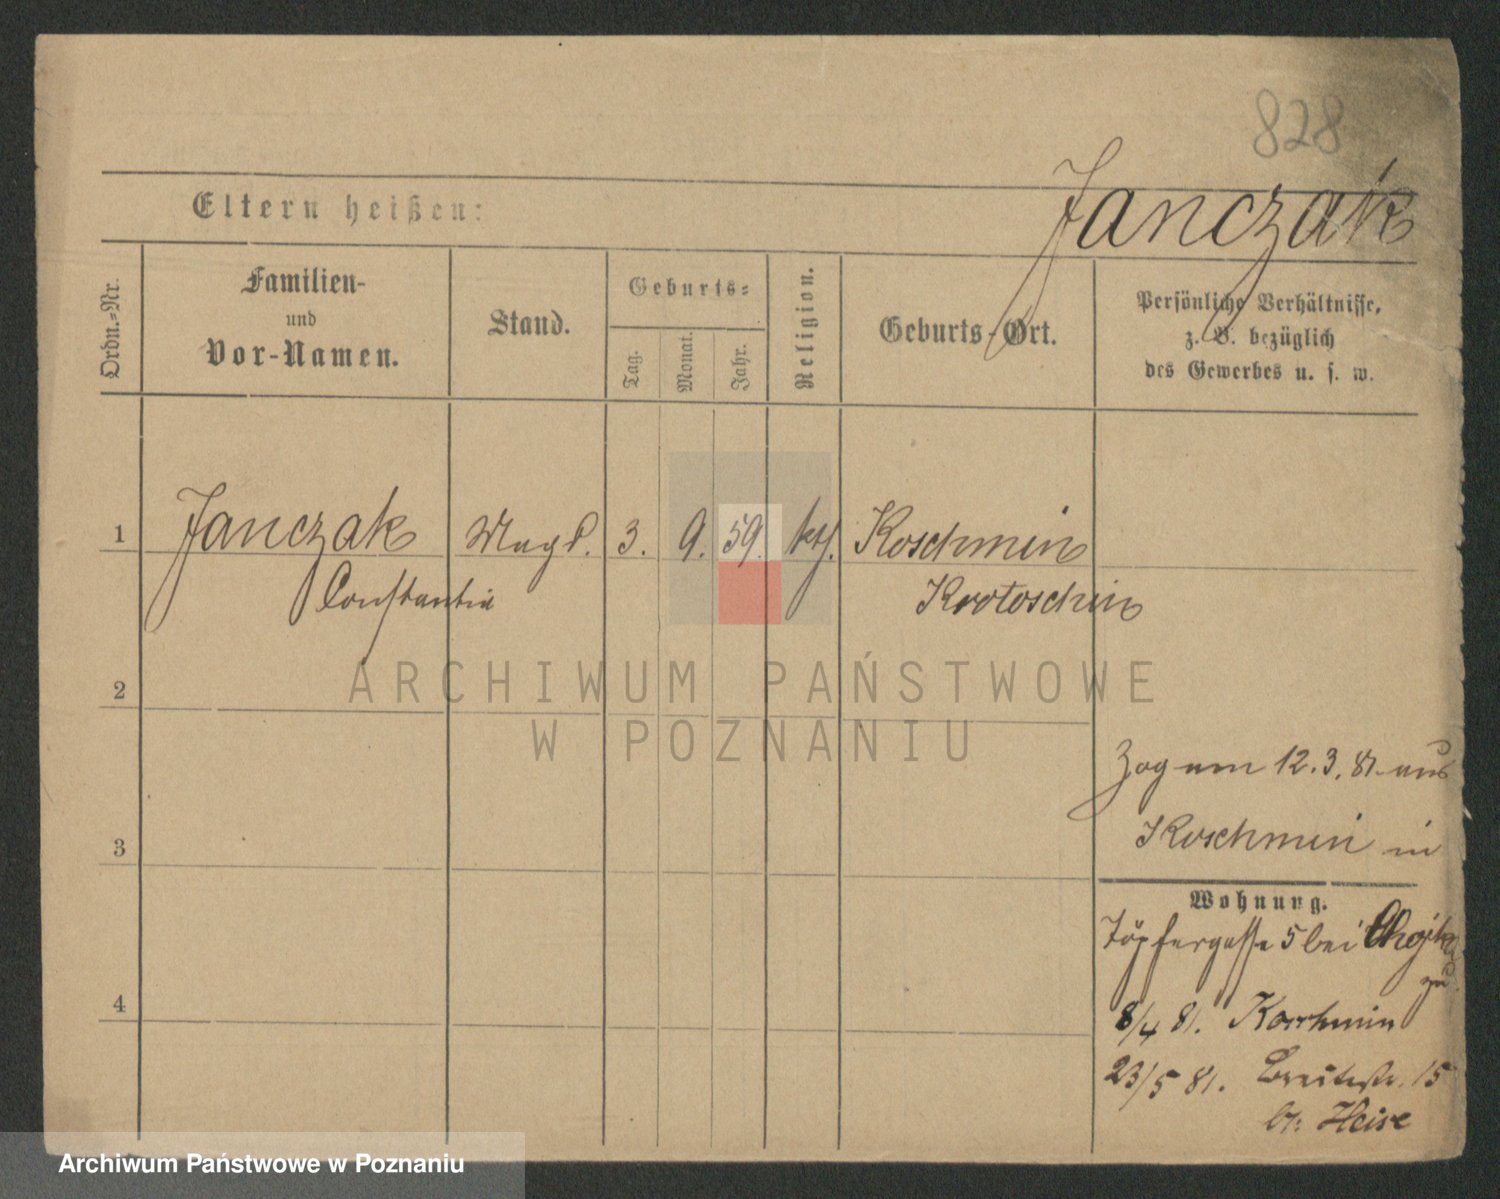 828
Janczak
Eltern heißen:
Ordn.-Nr.
Familien-
und
Vor-Namen.
Stand.
Geburts-
Tag.
Monat.
Jahr.
Religion.
Geburts-Ort.
Persönliche Verhältnisse,
z. B. bezüglich
des Gewerbes u. s. w.
1 Janczak Magd. 3. 9. 59. kth. Koschmin
Constantia Krotoschin
2
ARCHIWUM PAŃSTWOWE
W POZNANIU
Zog am 12.3.81. aus
3
Koschmin in
Wohnung.
Töpfergasse 5 bei
zu
4
8/4 81. Koschmin
23/5 81. Breitestr. 15
b. Heise
Archiwum Państwowe w Poznaniu